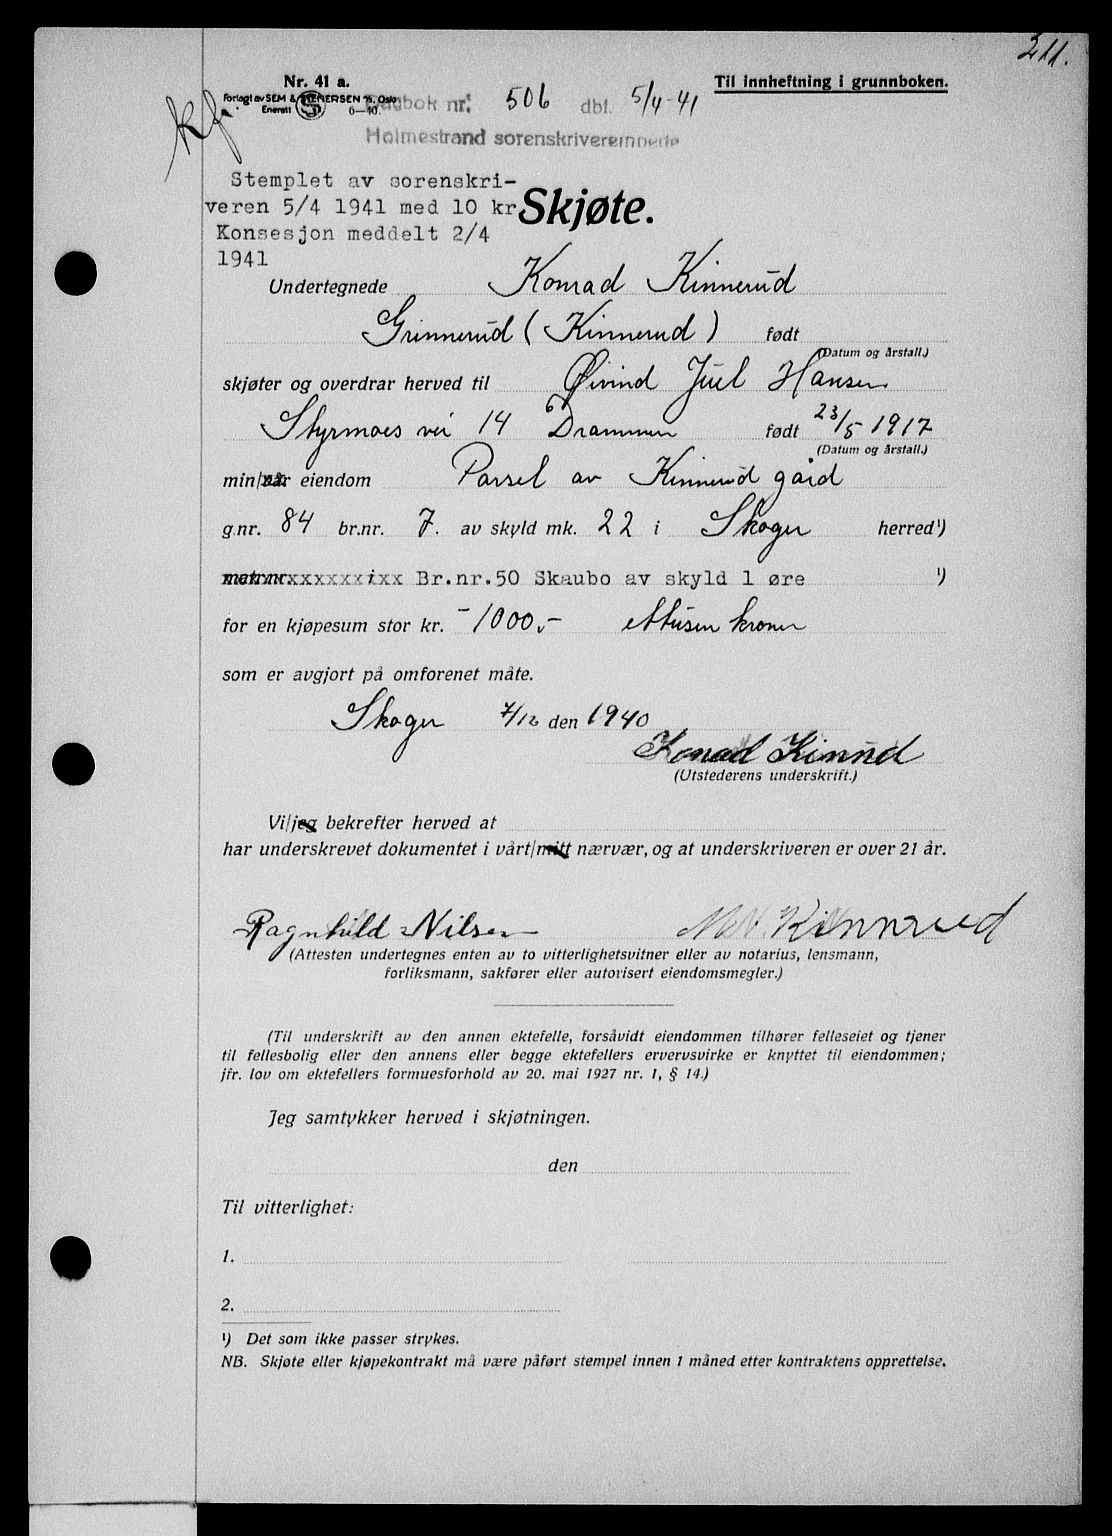 211.
Nr. 41 a.
Til innheftning i grunnboken.
Forlagt av SEM & STENERSEN A/S, Oslo
Enerett 6—40.
Dagbok nr. 506 dbf. 5/4-41
Holmestrand sorenskriverembede
kfj.
Stemplet av sorenskri-
veren 5/4 1941 med 10 kr
Konsesjon meddelt 2/4
1941
Skjøte.
Undertegnede Konrad Kinnerud
Grinnerud (Kinnerud) født
(Datum og årstall.)
skjøter og overdrar herved til Øivind Juel Hansen
Styrmoes vei 14 Drammen født 23/5 1917
(Datum og årstall.)
min/vår eiendom Parsel av Kinnerud gård
g.nr. 84 br.nr. 7. av skyld mk. 22 i Skoger herred¹)
matr.nr.xxxxxxxxixx Br.nr.50 Skaubo av skyld 1 øre ¹)
for en kjøpesum stor kr. -1000,- ettusen kroner
som er avgjort på omforenet måte.
Skoger 7/12 den 1940
Konrad Kinnrud
(Utstederens underskrift.)
Vi/jeg bekrefter herved at
har underskrevet dokumentet i vårt/mitt nærvær, og at underskriveren er over 21 år.
Ragnhild Nilsen Kinnerud
(Attesten undertegnes enten av to vitterlighetsvitner eller av notarius, lensmann,
forliksmann, sakfører eller autorisert eiendomsmegler.)
(Til underskrift av den annen ektefelle, forsåvidt eiendommen tilhører felleseiet og tjener
til fellesbolig eller den annens eller begge ektefellers ervervsvirke er knyttet til eiendommen;
jfr. lov om ektefellers formuesforhold av 20. mai 1927 nr. 1, § 14.)
Jeg samtykker herved i skjøtningen.
den
Til vitterlighet:
1.
2.
¹) Det som ikke passer strykes.
NB. Skjøte eller kjøpekontrakt må være påført stempel innen 1 måned etter kontraktens opprettelse.